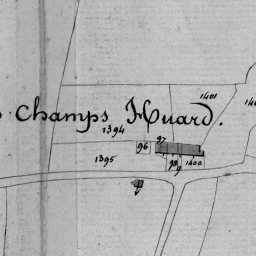 1401
Champs Huard.
1394
97
96
1395
98
1400